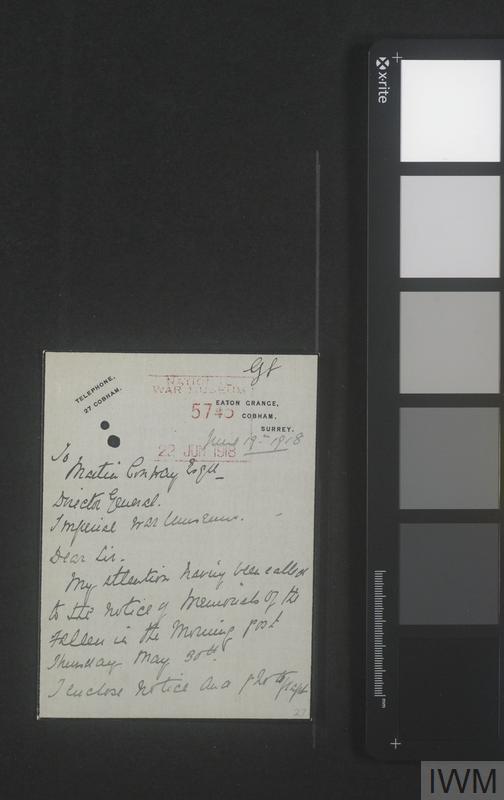 x-rite
Gf
TELEPHONE,
27 COBHAM.
NATIONAL
WAR MUSEUM
5745
22 JUN 1918
EATON GRANGE,
COBHAM,
SURREY.
June 19th 1918
To
Martin Conway Esqre
Director General.
Imperial War Museum.
Dear Sir.
My attention having been called
to the notice of Memorials of the
Fallen in the Morning post
Thursday May 30th.
I enclose notice and photograph
27
mm
IWM